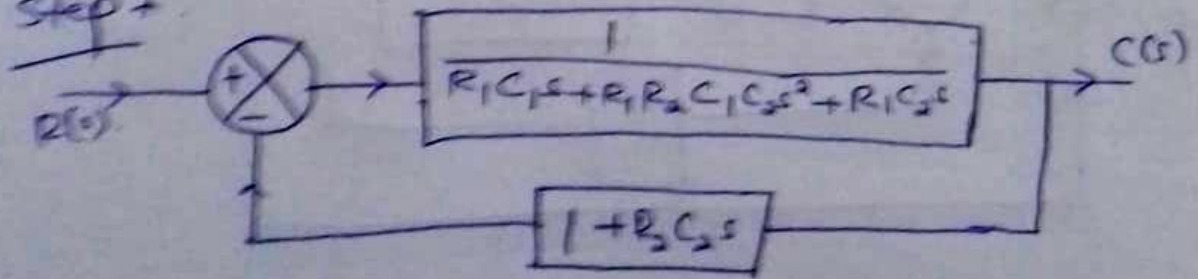 Step
R(s)
+
-
1
R₁C₁s+R₁R₂C₁C₂s²+R₁C₂s
C(s)
1+R₂C₂s